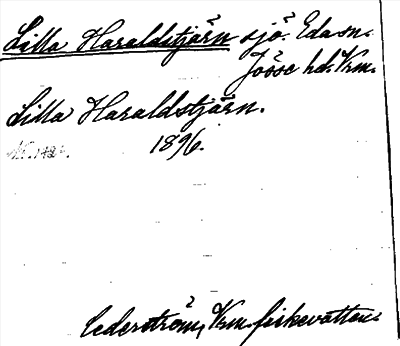 Lilla Haraldstjärn sjö. Eda sn.
Jösse hd. Vrm.
Lilla Haraldstjärn.
1896.
Cederström, Vrm. fiskevatten.